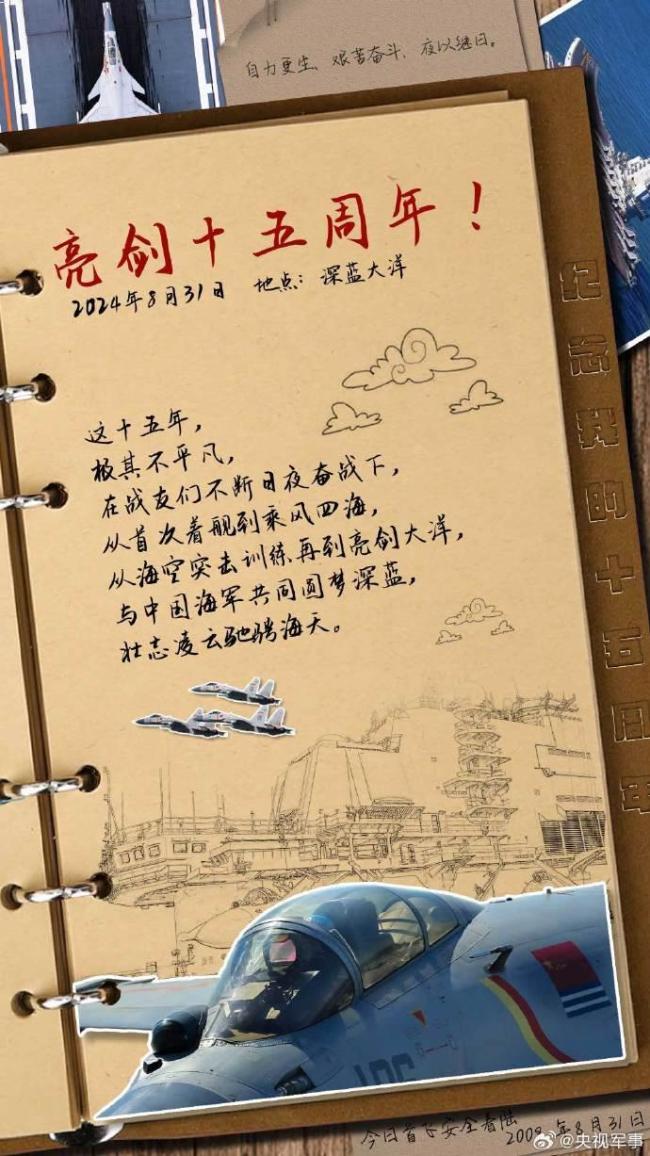 自力更生、艰苦奋斗、夜以继日。
亮剑十五周年！
2024年8月31日 地点：深蓝大洋
这十五年，
极其不平凡，
在战友们不断日夜奋战下，
从首次着舰到乘风四海，
从海空突击训练再到亮剑大洋，
与中国海军共同圆梦深蓝，
壮志凌云驰骋海天。
纪念我的十五周年
今日首飞安全着陆
2009年8月31日
@央视军事